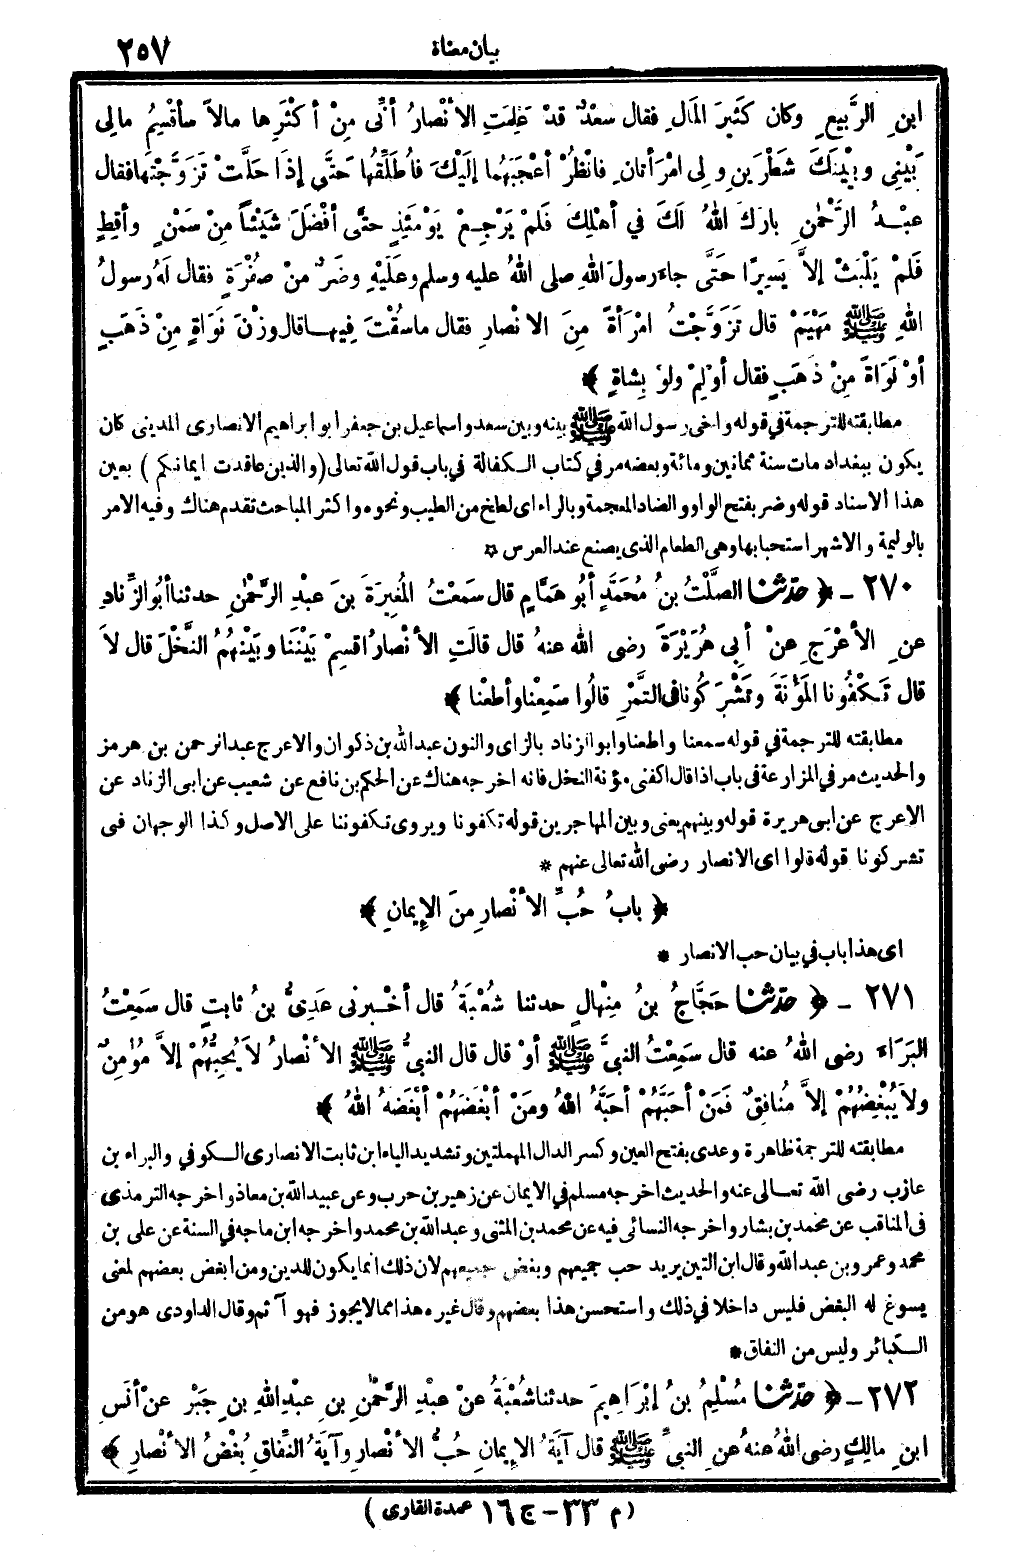 بيان معناه ٢٥٧
ابنِ الرَّبيعِ وكان كَثِيرَ المَالِ فقال سعْدٌ قدْ عَلِمَتِ الأنْصارُ أنِّى مِنْ أكْثَرِها مالاً سأقْسِمُ مالِى
بَيْنِى وبيْنَكَ شَطْرَيْنِ ولِى امْرَأتانِ فانْظُرْ أعْجَبَهُما إلَيْكَ فأُطَلِّقُها حَتَّى إذَا حَلَّتْ تَزَوَّجْتَها فقال
عبْدُ الرَّحْمٰنِ بارَكَ اللهُ لَكَ في أهْلِكَ فَلمْ يَرْجِعْ يَوْمَئِذٍ حتَّى أفْضَلَ شَيْئاً مِنْ سَمْنٍ وأقِطٍ
فَلمْ يَلْبَثْ إلاَّ يَسِيرًا حَتَّى جاءَ رسولَ اللهِ صلى اللهُ عليه وسلم وعَلَيْهِ وضَرٌ مِنْ صُفْرَةٍ فقال لهُ رسولُ
اللهِ ﷺ مَهْيَمْ قال تَزَوَّجْتُ امْرَأةً مِنَ الانْصارِ فقال ماسُقْتَ فِيها قال وزْنَ نَوَاةٍ مِنْ ذَهَبٍ
أوْ نَوَاةً مِنْ ذَهَبٍ فقال أوْلِمْ ولوْ بِشاةٍ ﴾
مطابقته للترجمة في قوله واخى رسول الله ﷺ بينه وبين سعد واسماعيل بن جعفر ابو ابراهيم الانصارى المدينى كان
يكون ببغداد مات سنة ثمانين ومائة وبعضه مر في كتاب الكفالة في باب قول الله تعالى (والذين عاقدت ايمانكم) بعين
هذا الاسناد قوله وضر بفتح الواو والضاد المعجمة وبالراء اى لطخ من الطيب ونحوه واكثر المباحث تقدم هناك وفيه الامر
بالوليمة والاشهر استحبابها وهى الطعام الذى يصنع عند العرس ✩
٢٧٠ - ﴿ حدّثنا الصَّلْتُ بنُ مُحَمَّدٍ أبُو هَمَّامٍ قال سَمِعْتُ المُغِيرَةَ بنَ عبْدِ الرَّحْمٰنِ حدثنا أبُو الزِّنادِ
عنِ الأعْرَجِ عنْ أبِي هُرَيْرَةَ رضى اللهُ عنهُ قال قالَتِ الأنْصارُ اقسِمْ بَيْنَنا وبَيْنَهُمُ النَّخْلَ قال لاَ
قال تَكْفُونا المَؤُنَةَ وتَشْرَكُونا فى التَّمْرِ قالُوا سَمِعْنا وأطَعْنا ﴾
مطابقته للترجمة في قوله سمعنا واطعنا وابو الزناد بالزاى والنون عبد الله بن ذكوان والاعرج عبد الرحمن بن هرمز
والحديث مر في المزارعة فى باب اذا قال اكفنى مؤنة النخل فانه اخرجه هناك عن الحكم بن نافع عن شعيب عن ابى الزناد عن
الاعرج عن ابى هريرة قوله وبينهم يعنى وبين المهاجرين قوله تكفونا ويروى تكفوننا على الاصل وكذا الوجهان فى
تشركونا قوله قالوا اى الانصار رضى الله تعالى عنهم *
﴿ بابُ حُبِّ الأنْصارِ مِنَ الإيمانِ ﴾
اى هذا باب في بيان حب الانصار *
٢٧١ - ﴿ حدّثنا حَجَّاجُ بنُ مِنْهالٍ حدثنا شُعْبَةُ قال أخْبرنى عَدِىُّ بنُ ثابتٍ قال سَمِعْتُ
البَرَاءَ رضى اللهُ عنه قال سَمِعْتُ النبىَّ ﷺ أوْ قال قال النبىُّ ﷺ الأنْصارُ لاَ يُحِبُّهُمْ إلاَّ مُؤْمِنٌ
ولاَ يُبْغِضُهُمْ إلاَّ مُنافِقٌ فَمَنْ أحَبَّهُمْ أحَبَّهُ اللهُ ومَنْ أبْغَضَهُمْ أبْغَضَهُ اللهُ ﴾
مطابقته للترجمة ظاهرة وعدى بفتح العين وكسر الدال المهملتين وتشديد الياء ابن ثابت الانصارى الكوفي والبراء بن
عازب رضى الله تعالى عنه والحديث اخرجه مسلم في الايمان عن زهير بن حرب وعن عبيد الله بن معاذ واخرجه الترمذى
فى المناقب عن محمد بن بشار واخرجه النسائى فيه عن محمد بن المثنى وعبد الله بن محمد واخرجه ابن ماجه في السنة عن على بن
محمد وعمرو بن عبد الله وقال ابن التين يريد حب جميعهم وبغض جميعهم لان ذلك انما يكون للدين ومن ابغض بعضهم لمعنى
يسوغ له البغض فليس داخلا في ذلك واستحسن هذا بعضهم وقال غيره هذا مما لا يجوز فهو آثم وقال الداودى هو من
الكبائر وليس من النفاق *
٢٧٢ - ﴿ حدّثنا مُسْلِمُ بنُ إبْرَاهِيمَ حدثنا شُعْبَةُ عنْ عبْدِ الرَّحْمٰنِ بنِ عبْدِ اللهِ بنِ جَبْرٍ عنْ أنَسِ
ابنِ مالِكٍ رضى اللهُ عنهُ عنِ النبىِّ ﷺ قال آيَةُ الإيمانِ حُبُّ الأنْصارِ وآيَةُ النِّفاقِ بُغْضُ الأنْصارِ ﴾
(م ٣٣ - ج ١٦ عمدة القارى)